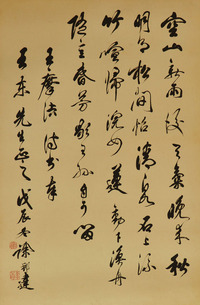 空山新雨後天氣晚來秋
明月松間照清泉石上流
竹喧歸浣女蓮動下漁舟
隨意春芳歇王孫自可留
王摩詰詩書奉
東先生正之戊辰